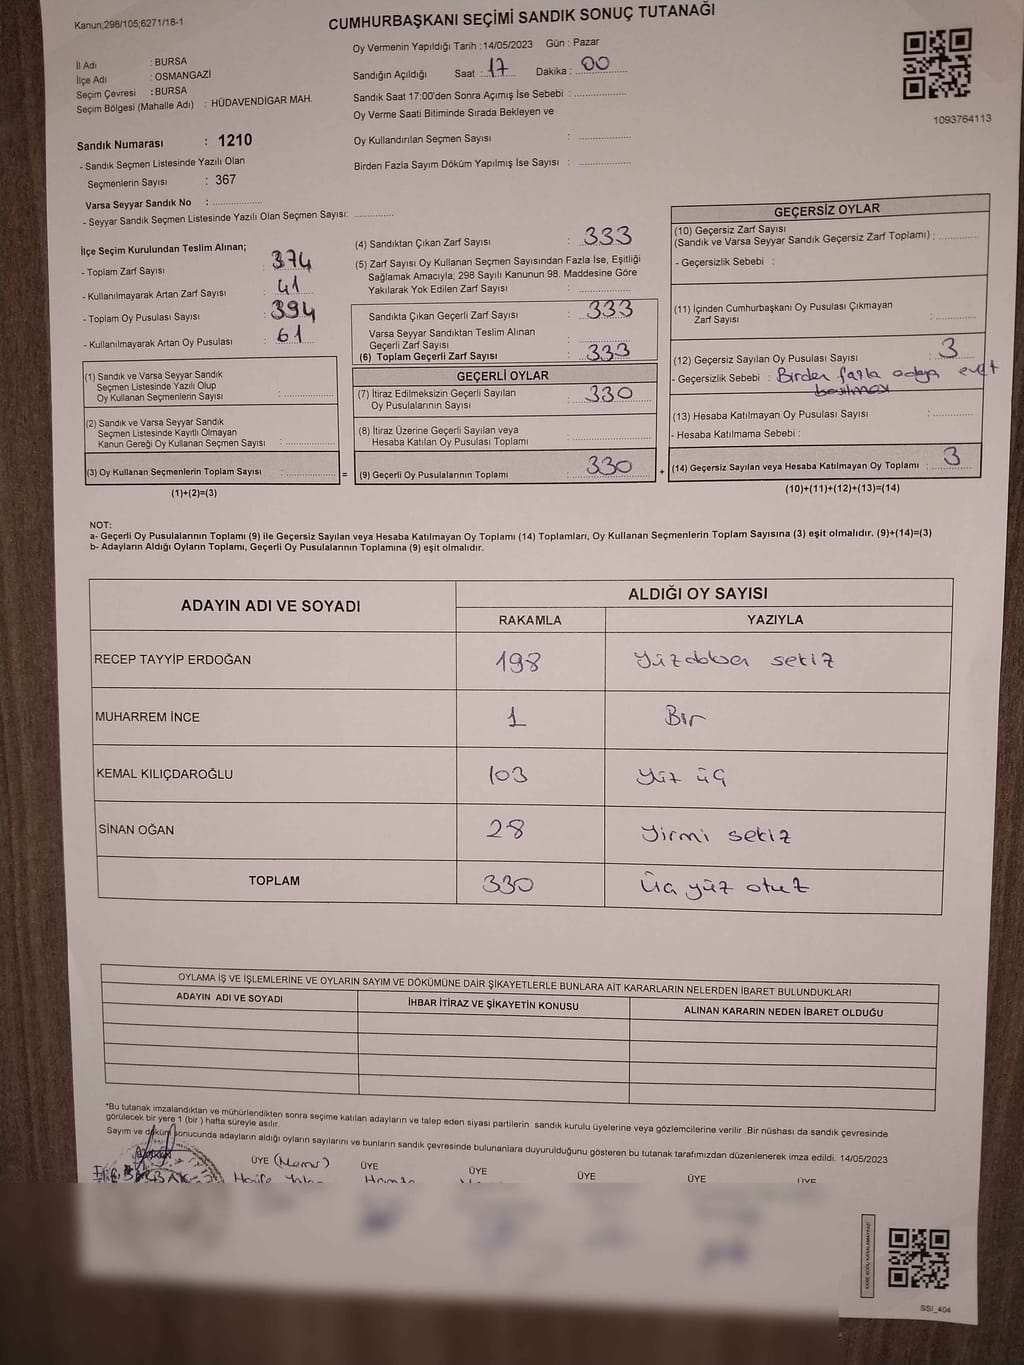 Kanun;298/105;6271/18-1
CUMHURBAŞKANI SEÇİMİ SANDIK SONUÇ TUTANAĞI
İl Adı : BURSA
İlçe Adı : OSMANGAZİ
Seçim Çevresi : BURSA
Seçim Bölgesi (Mahalle Adı) : HÜDAVENDİGAR MAH.
Sandık Numarası : 1210
- Sandık Seçmen Listesinde Yazılı Olan
Seçmenlerin Sayısı : 367
Varsa Seyyar Sandık No :
- Seyyar Sandık Seçmen Listesinde Yazılı Olan Seçmen Sayısı:
Oy Vermenin Yapıldığı Tarih :14/05/2023 Gün : Pazar
Sandığın Açıldığı Saat : 17 Dakika : 00
Sandık Saat 17:00'den Sonra Açımış İse Sebebi :
Oy Verme Saati Bitiminde Sırada Bekleyen ve
Oy Kullandırılan Seçmen Sayısı :
Birden Fazla Sayım Döküm Yapılmış İse Sayısı :
1093764113
İlçe Seçim Kurulundan Teslim Alınan;
- Toplam Zarf Sayısı : 374
- Kullanılmayarak Artan Zarf Sayısı : 41
- Toplam Oy Pusulası Sayısı : 394
- Kullanılmayarak Artan Oy Pusulası : 61
(1) Sandık ve Varsa Seyyar Sandık
Seçmen Listesinde Yazılı Olup
Oy Kullanan Seçmenlerin Sayısı :
(2) Sandık ve Varsa Seyyar Sandık
Seçmen Listesinde Kayıtlı Olmayan
Kanun Gereği Oy Kullanan Seçmen Sayısı :
(3) Oy Kullanan Seçmenlerin Toplam Sayısı : =
(1)+(2)=(3)
(4) Sandıktan Çıkan Zarf Sayısı : 333
(5) Zarf Sayısı Oy Kullanan Seçmen Sayısından Fazla İse, Eşitliği
Sağlamak Amacıyla; 298 Sayılı Kanunun 98. Maddesine Göre
Yakılarak Yok Edilen Zarf Sayısı :
Sandıkta Çıkan Geçerli Zarf Sayısı : 333
Varsa Seyyar Sandıktan Teslim Alınan
Geçerli Zarf Sayısı :
(6) Toplam Geçerli Zarf Sayısı : 333
GEÇERLİ OYLAR
(7) İtiraz Edilmeksizin Geçerli Sayılan
Oy Pusulalarının Sayısı : 330
(8) İtiraz Üzerine Geçerli Sayılan veya
Hesaba Katılan Oy Pusulası Toplamı :
(9) Geçerli Oy Pusulalarının Toplamı : 330 +
GEÇERSİZ OYLAR
(10) Geçersiz Zarf Sayısı
(Sandık ve Varsa Seyyar Sandık Geçersiz Zarf Toplamı) :
- Geçersizlik Sebebi :
(11) İçinden Cumhurbaşkanı Oy Pusulası Çıkmayan
Zarf Sayısı :
(12) Geçersiz Sayılan Oy Pusulası Sayısı : 3
- Geçersizlik Sebebi : Birden fazla adaya evet
basılması
(13) Hesaba Katılmayan Oy Pusulası Sayısı :
- Hesaba Katılmama Sebebi :
(14) Geçersiz Sayılan veya Hesaba Katılmayan Oy Toplamı : 3
(10)+(11)+(12)+(13)=(14)
NOT:
a- Geçerli Oy Pusulalarının Toplamı (9) ile Geçersiz Sayılan veya Hesaba Katılmayan Oy Toplamı (14) Toplamları, Oy Kullanan Seçmenlerin Toplam Sayısına (3) eşit olmalıdır. (9)+(14)=(3)
b- Adayların Aldığı Oyların Toplamı, Geçerli Oy Pusulalarının Toplamına (9) eşit olmalıdır.
ADAYIN ADI VE SOYADI ALDIĞI OY SAYISI
RAKAMLA YAZIYLA
RECEP TAYYİP ERDOĞAN 198 Yüz doksan sekiz
MUHARREM İNCE 1 Bir
KEMAL KILIÇDAROĞLU 103 Yüz üç
SİNAN OĞAN 28 Yirmi sekiz
TOPLAM 330 Üç yüz otuz
OYLAMA İŞ VE İŞLEMLERİNE VE OYLARIN SAYIM VE DÖKÜMÜNE DAİR ŞİKAYETLERLE BUNLARA AİT KARARLARIN NELERDEN İBARET BULUNDUKLARI
ADAYIN ADI VE SOYADI İHBAR İTİRAZ VE ŞİKAYETİN KONUSU ALINAN KARARIN NEDEN İBARET OLDUĞU
*Bu tutanak imzalandıktan ve mühürlendikten sonra seçime katılan adayların ve talep eden siyasi partilerin sandık kurulu üyelerine veya gözlemcilerine verilir .Bir nüshası da sandık çevresinde
görülecek bir yere 1 (bir ) hafta süreyle asılır.
Sayım ve döküm sonucunda adayların aldığı oyların sayılarını ve bunların sandık çevresinde bulunanlara duyurulduğunu gösteren bu tutanak tarafımızdan düzenlenerek imza edildi. 14/05/2023
ÜYE (Memur) ÜYE ÜYE ÜYE ÜYE ÜYE
SSI_404